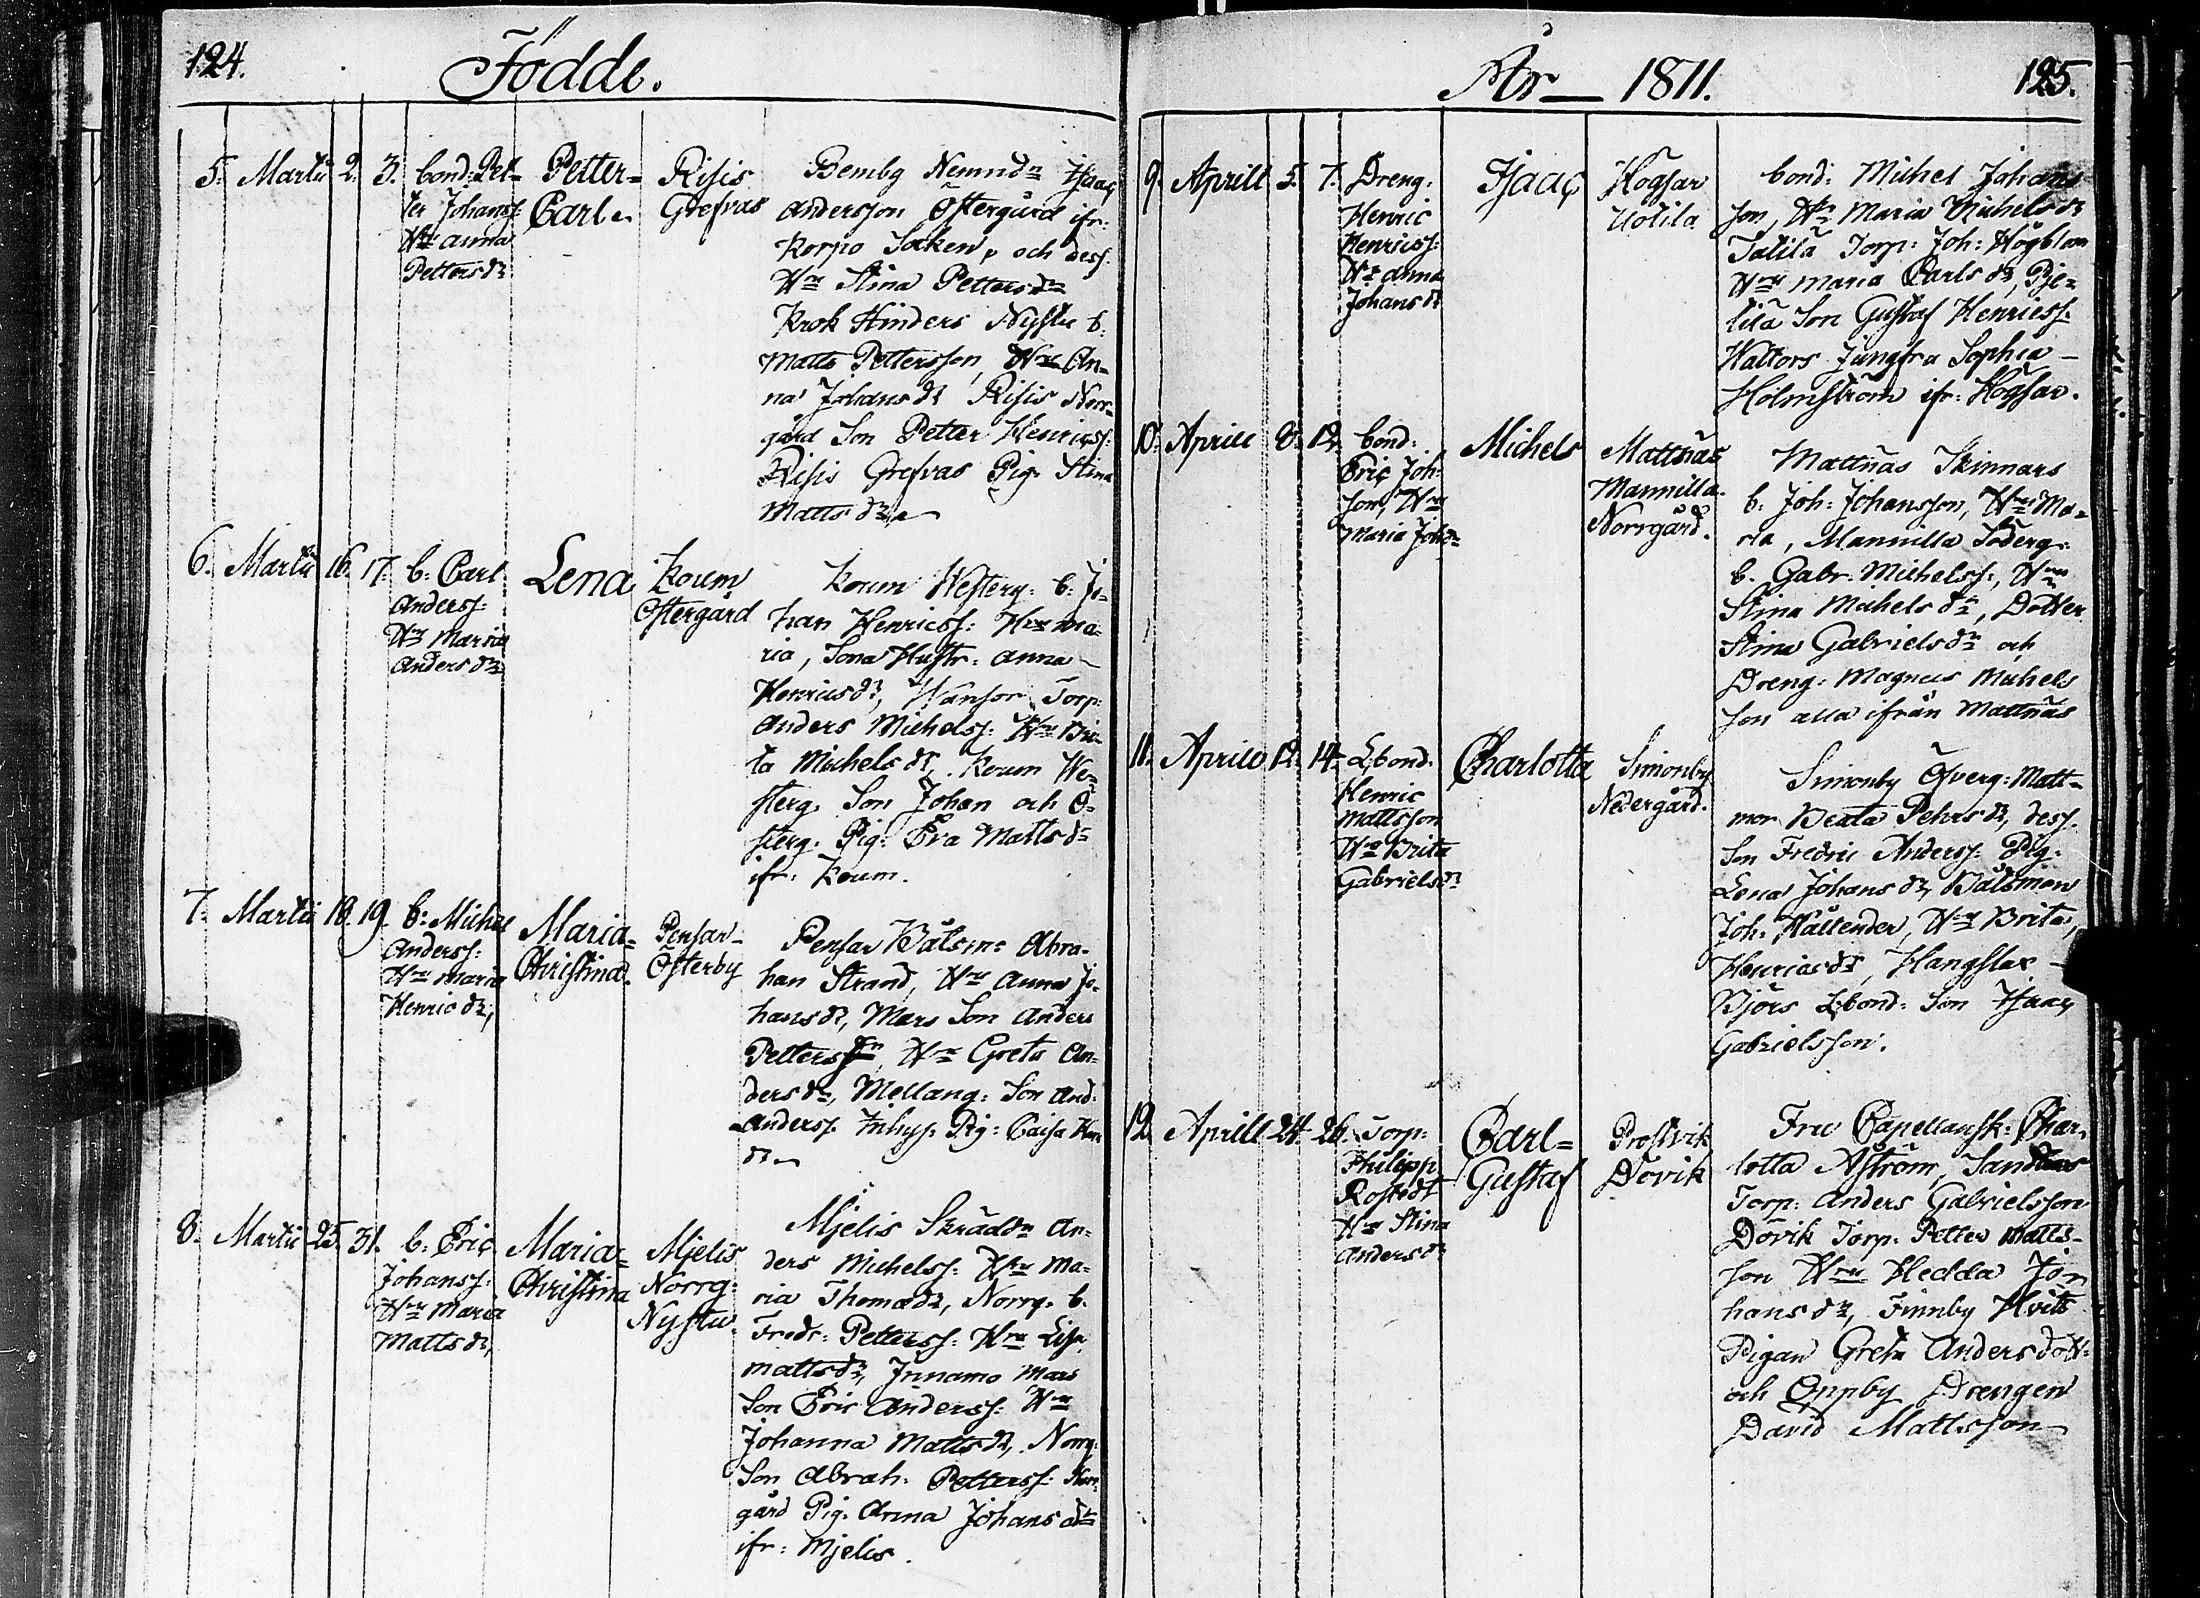 124.
Födde.
5. Martii 2. 3. bond: Pet=
ter Johanss:
Hu anna
Petters dr
Petter=
Carl.
Risis
Grefvas
Bemby Nemnd Isaac
andersson Östergård ifr:
Korpo Socken, och dess
Hru Stina Petters dr
Krok Hinders Nystu b:
Matts Pettersson, Hru An=
na Johans dr Risis Norr=
gård Son Petter Henricss:
Risis Grefvas Pig. Stina
Matts dr
6. Martii 16. 17. b: Carl
Anderss:
Hru Maria
Anders dr
Lena
Koum
Östergård
Koum Westerg: b: Jo=
han Henricss: Hru Ma=
ria, Sona Hustr: anna
Henrics dr, Wansor Torp:
Anders Michelss: Hru Bri=
ta Michels dr, Koum We=
sterg. Son Johan och Ö=
sterg. Pig: Eva Matts dr
ifr: Koum.
7. Martii 18. 19. b: Michel
Anderss:
Hru Maria
Henric dr,
Maria=
Christina.
Pensar
Österby
Pensar Båtsm: Abra=
ham Strand, Hru Anna Jo=
hans dr, Mars Son Anders
Petterss Hru Greta An=
ders dr, Mellang: Son And:
Anderss. Inhys: Pig: Caisa
dr
8. Martii 25. 31. b: Eric
Johanss:
Hru Maria
Matts dr,
Maria=
Christina
Mjelis
Norrg:
Nystu.
Mjelis Skrädd An=
ders Michelss: Hru Ma=
ria Thomæ dr, Norrg. b.
Fredr: Petterss: Hru Lisa
Matts dr, Innamo Mars
Son Eric Anderss: Hru
Johanna Matts dr, Norrg:
Son Abrah: Petterss: Norr=
gård Pig. Anna Johans dr
ifr: Mjelis.
År 1811.
125.
9. Aprill 5. 7. Dreng:
Henric
Henricss:
Hru anna
Johans dr
Isaac
Högsar
Uotila
bond: Michel Johans
son, Hru Maria Michels dr
Talila Torp: Joh: Högblom
Hru Maria Carls dr, Pje=
tila Son Gustaf Henricss:
Wattors Jungfru Sophia
Holmström ifr: Högsar.
10. Aprill 8. 12. bond:
Eric Joh:
son, Hru
Maria Joh dr
Michels
Mattnäs
Mannilla
Norrgård.
Mattnäs Skinnars
b: Joh: Johansson, Hru Ma=
ria, Mannilla Söderg:
b. Gabr: Michelss:, Hru
Stina Michels dr, Dotter
Stina Gabriels dr och
Dreng: Magnus Michels
son alla ifrån Mattnäs
11. Aprill 12. 14. Lbond.
Henric
Mattsson
Hru Brita
Gabriels dr
Charlotta
Simonby
Nedergård.
Simonby Öfverg: Matt=
mor Beata Pehrs dr, dess
Son Fredric Anderss: Pig:
Lena Johans dr, Båtsman
Joh: Hållender, Hru Brita
Henrics dr, Hangslax
Björs Lbond: Son Isaac
Gabrielsson.
12. Aprill 24. 26. Torp:
Philipp
Rostedt
Hru Stina
Anders dr
Carl=
Gustaf
Prostvik
Dövik
Fru Capellansk: Char=
lotta Aström,
Torp: Anders Gabrielsson
Dövik Torp: Petter Matts=
son Hru Hedda Jo=
hans dr, Finnby Hvits
Pigan Greta Anders dott:
och Önnby Drengen
David Mattsson